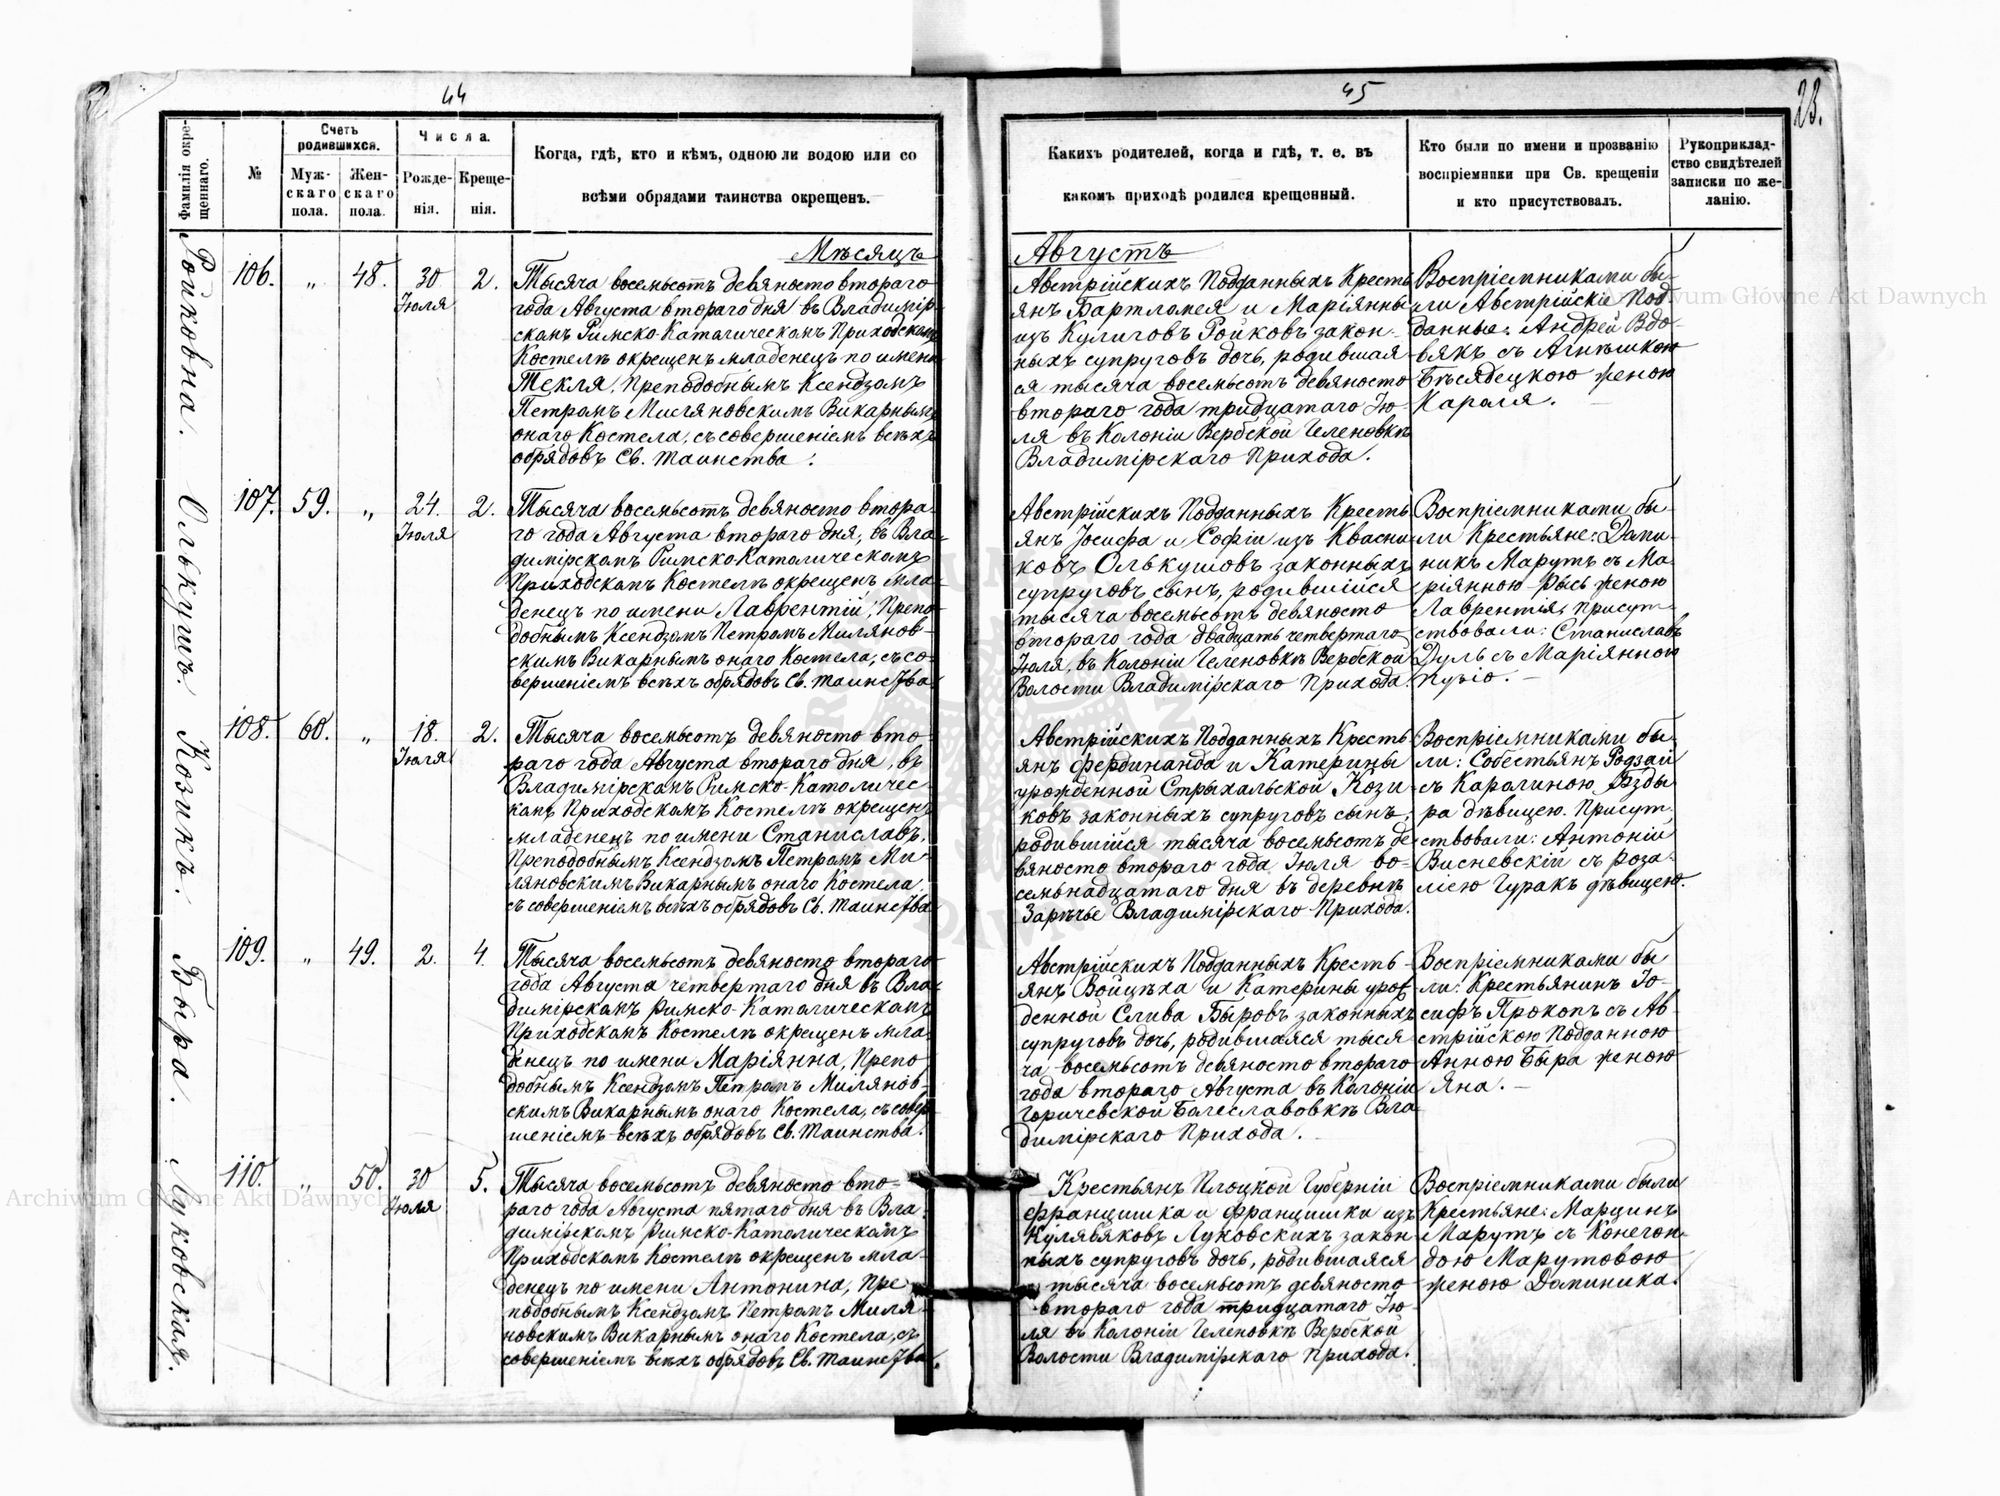 44
Фамилія окре-
щеннаго.
№
Счетъ
родившихся.
Муж-
скаго
пола.
Жен-
скаго
пола.
Числа.
Рожде-
нія.
Креще-
нія.
Когда, гдѣ, кто и кѣмъ, одною ли водою или со
всѣми обрядами таинства окрещенъ.
Мѣсяцъ
Ройковна.
106.
"
48.
30
Іюля
2.
Тысяча восемьсотъ девяносто втораго
года Августа втораго дня въ Владимір-
скомъ Римско-Католическомъ Приходскомъ
Костелѣ окрещенъ младенецъ по имени
Текля, Преподобнымъ Ксендзомъ
Петромъ Миляновскимъ Викарнымъ
онаго Костела, съ совершеніемъ всѣхъ
обрядовъ Св. таинства.
Олькушъ.
107.
59.
"
24.
Іюля
2.
Тысяча восемьсотъ девяносто втора-
го года Августа втораго дня, въ Вла-
димірскомъ Римско-Католическомъ
Приходскомъ Костелѣ окрещенъ мла-
денецъ по имени Лаврентій, Препо-
добнымъ Ксендзомъ Петромъ Милянов-
скимъ Викарнымъ онаго Костела, съ со-
вершеніемъ всѣхъ обрядовъ Св. таинства.
Козикъ.
108.
60.
"
18.
Іюля
2.
Тысяча восемьсотъ девяносто вто-
раго года Августа втораго дня, въ
Владимірскомъ Римско-Католичес-
комъ Приходскомъ Костелѣ окрещенъ
младенецъ по имени Станиславъ,
Преподобнымъ Ксендзомъ Петромъ Ми-
ляновскимъ Викарнымъ онаго Костела,
съ совершеніемъ всѣхъ обрядовъ Св. таинства
Быра.
109.
"
49.
2.
4.
Тысяча восемьсотъ девяносто втораго
года Августа четвертаго дня въ Вла-
димірскомъ Римско-Католическомъ
Приходскомъ Костелѣ окрещенъ мла-
денецъ по имени Маріянна, Препо-
добнымъ Ксендзомъ Петромъ Милянов-
скимъ Викарнымъ онаго Костела, съ совер-
шеніемъ всѣхъ обрядовъ Св. Таинства.
Луковская.
110.
"
50.
30
Іюля
5.
Тысяча восемьсотъ девяносто вто-
раго года Августа пятаго дня въ Вла-
димірскомъ Римско-Католическомъ
Приходскомъ Костелѣ окрещенъ мла-
денецъ по имени Антонина, Пре-
подобнымъ Ксендзомъ Петромъ Миля-
новскимъ Викарнымъ онаго Костела, съ
совершеніемъ всѣхъ обрядовъ Св. таинства.
45
23.
Какихъ родителей, когда и гдѣ, т. е. въ
какомъ приходѣ родился крещенный.
Кто были по имени и прозванію
воспріемники при Св. крещеніи
и кто присутствовалъ.
Рукоприклад-
ство свидѣтелей
записки по же-
ланію.
Августъ
Австрійскихъ Подданныхъ Кресть
янъ Бартломея и Маріянны
изъ Кулиговъ Ройковъ закон-
ныхъ супруговъ дочь, родившая
ся тысяча восемьсотъ девяносто
втораго года тридцатаго Ію-
ля въ Колоніи Вербской Геленовкѣ
Владимірскаго Прихода.
Воспріемниками бы-
ли Австрійскіе Под
данные: Андрей Вдо-
вякъ съ Агнѣшкою
Бѣсядецкою женою
Кароля.
Австрійскихъ Подданныхъ Кресть
янъ Іосифа и Софіи изъ Квасни
ковъ Олькушовъ законныхъ
супруговъ сынъ, родившійся
тысяча восемьсотъ девяносто
втораго года двадцать четвертаго
Іюля, въ Колоніи Геленовкѣ Вербской
Волости Владимірскаго Прихода.
Воспріемниками бы-
ли Крестьяне: Доми-
никъ Марутъ съ Ма-
ріянною Рысь женою
Лаврентія; присут-
ствовали: Станиславъ
Дуль съ Маріянною
Пузіо.
Австрійскихъ Подданныхъ Кресть
янъ Фердинанда и Катерины
урожденной Стрыхальской Кози-
ковъ законныхъ супруговъ сынъ,
родившійся тысяча восемьсотъ де
вяносто втораго года Іюля во-
семьнадцатаго дня въ деревнѣ
Зарѣчье Владимірскаго Прихода.
Воспріемниками бы-
ли: Собестьянъ Родзай
съ Каролиною Бзды
ра дѣвицею. Присут-
ствовали: Антоній
Висневскій съ Роза-
ліею Гуракъ дѣвицею.
Австрійскихъ Подданныхъ Кресть-
янъ Войцѣха и Катерины урож
денной Слива Быровъ законныхъ
супруговъ дочь, родившаяся тыся
ча восемьсотъ девяносто втораго
года втораго Августа въ Колоніи
Горичевской Болеславовкѣ Вла
димірскаго Прихода.
Воспріемниками бы
ли: Крестьянинъ Іо-
сифъ Прокопъ съ Ав-
стрійскою Подданною
Анною Быра женою
Яна.
Крестьянъ Плоцкой Губерніи
Францишка и Францишки изъ
Кулявяковъ Луковскихъ закон
ныхъ супруговъ дочь, родившаяся
тысяча восемьсотъ девяносто
втораго года тридцатаго Ію-
ля въ Колоніи Геленовкѣ Вербской
Волости Владимірскаго прихода.
Воспріемниками были
Крестьяне: Марцинъ
Марутъ съ Конегон-
дою Марутовою
женою Доминика.
Archiwum Główne Akt Dawnych
Archiwum Główne Akt Dawnych